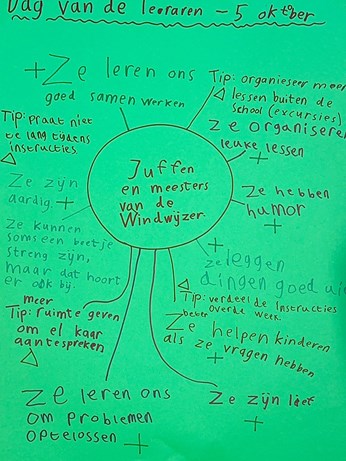 Dag van de leeraren - 5 oktober
+ Ze leren ons
goed samen werken
Tip: organiseer meer
lessen buiten de
school (excursies)
ze organiseren
leuke lessen
+
Tip: Praat niet
te lang tydens
instructies
Juffen
en meesters
van de
Windwijzer
Ze zijn
aardig. +
Ze hebben
humor
+
Ze kunnen
soms een beetje
streng zijn,
maar dat hoort
er ook bij.
+
ze leggen
dingen goed uit
Tip: verdeel de instructies
beter
over de week.
meer
Tip: ruimte geven
om el kaar
aantespreken
Ze helpen kinderen
als ze vragen hebben
+
Ze leren ons
om problemen
optelossen +
Ze zijn lief
+